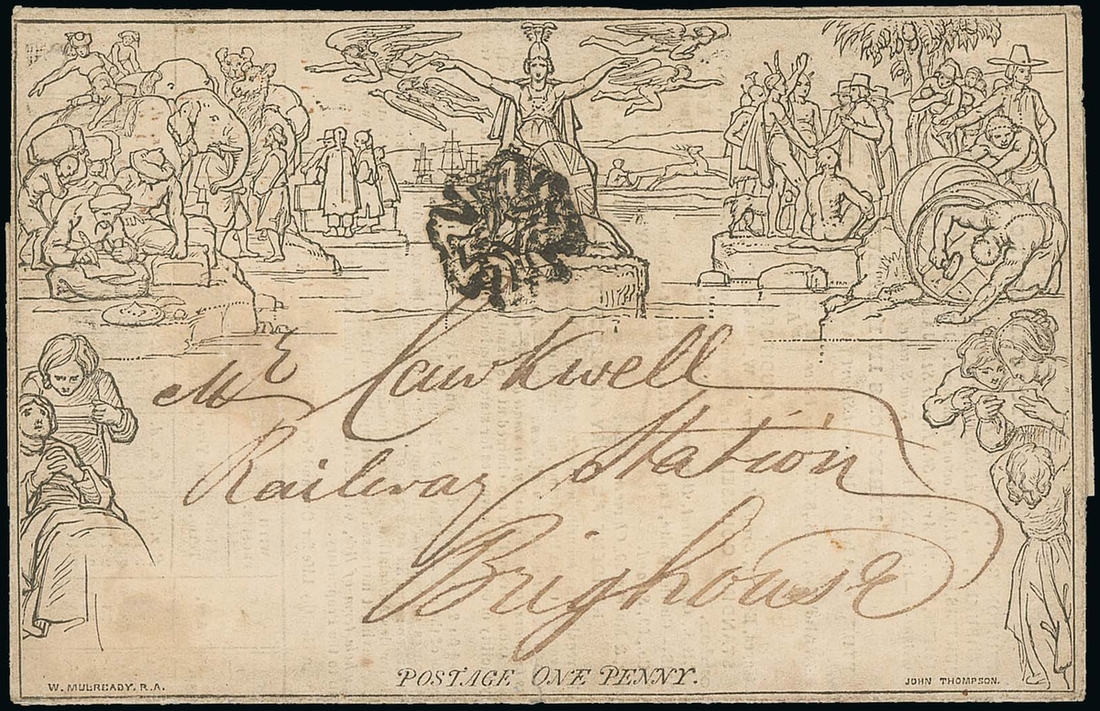 Mr Cawkwell
Railway Station
Brighouse
POSTAGE ONE PENNY.
W. MULREADY. R.A.
JOHN THOMPSON.